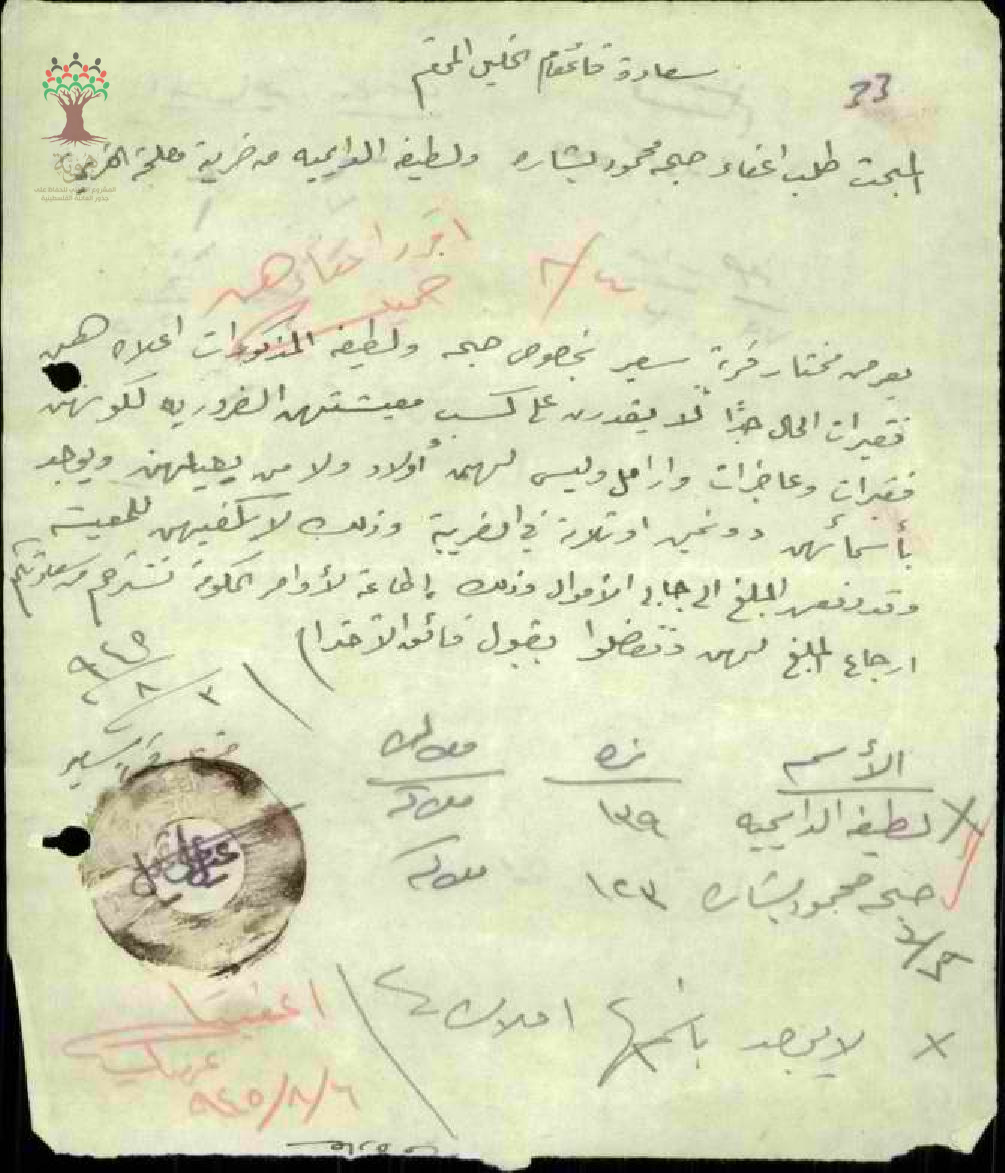 سعادة قائمقام الخليل المحترم
33
المبحث طلب اعفاء صبحه محمود بشاره ولطيفه الدايميه من ضريبة
اقرر اعفاءهن
يعرض مختار قرية سعير بخصوص صبحه ولطيفه المذكورات اعلاه هن
فقيرات الحال جدًا لا يقدرن على كسب معيشتهن الضروريه لكونهن
فقيرات وعاجزات وارامل وليس لهن أولاد ولا من يعيلهن ويوجد
بأسمائهن دونمين او ثلاثة في الضريبة وذلك لا يكفيهن للمعيشه
وقد دفعن المبلغ الى جابي الاموال وذلك إطاعة لأوامر الحكومة نسترحم من سعادتكم
ارجاع المبلغ لهن وتفضلوا بقبول فائق الاحترام
٣/٨/٩٤٥
مختار سعير
الأسم نمره
لطيفه الدايميه ١٣٩
صبحه محمود بشاره ١٢٣
x لا يوجد باسمها املاك
اعفيتا
٩٤٥/٨/٦